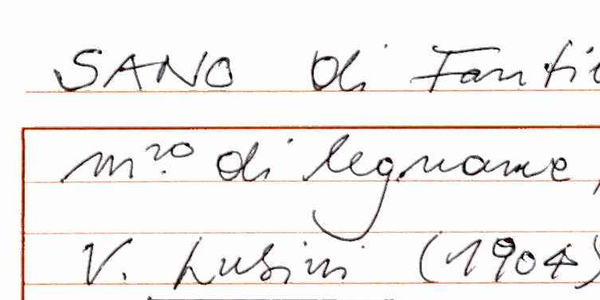 SANO di Fanti
m.ro di legname,
V. Lusini (1904)